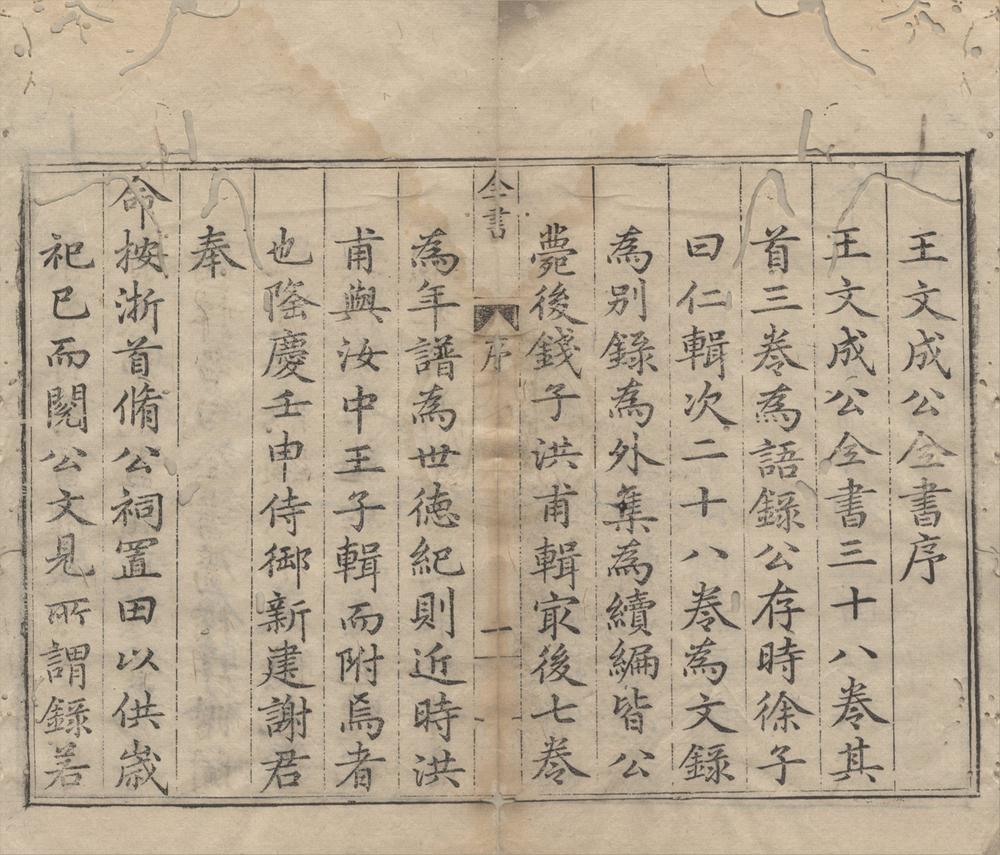 王文成公全書序
王文成公全書三十八卷其
首三卷為語錄公存時徐子
曰仁輯次二十八卷為文錄
為別錄為外集為續編皆公
薨後錢子洪甫輯㝡後七卷
全書
序
一
為年譜為世德紀則近時洪
甫與汝中王子輯而附焉者
也隆慶壬申侍御新建謝君
奉
命按浙首脩公祠置田以供歲
祀已而閱公文見所謂錄若